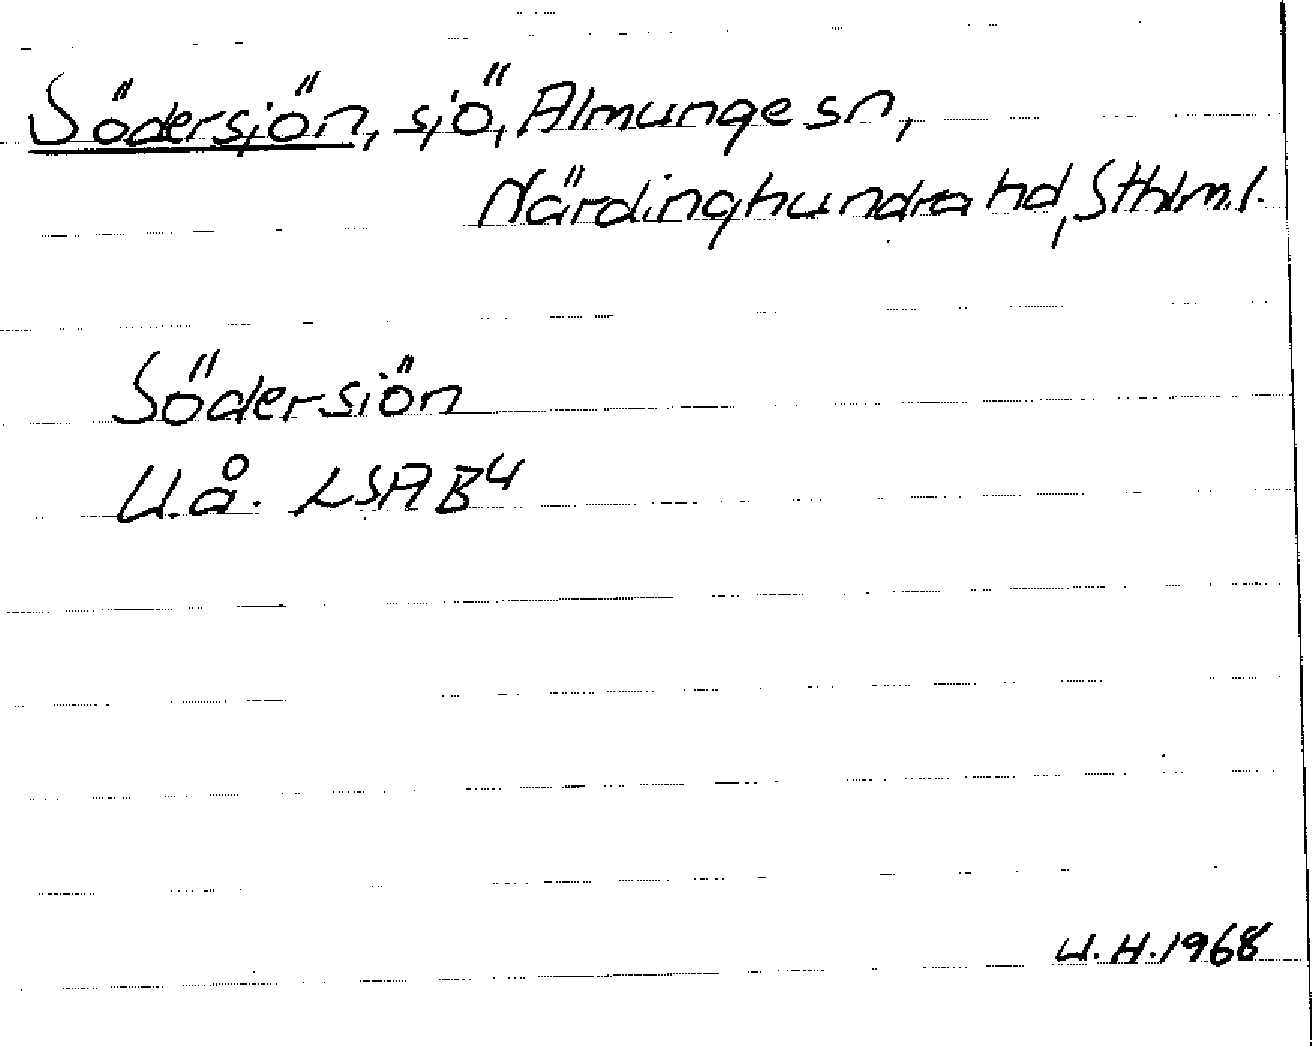 Södersjön, sjö, Almunge sn,
Närdinghundra hd, Sthlm. l.
Södersiön
U.å. LSA B4
U.H. 1968